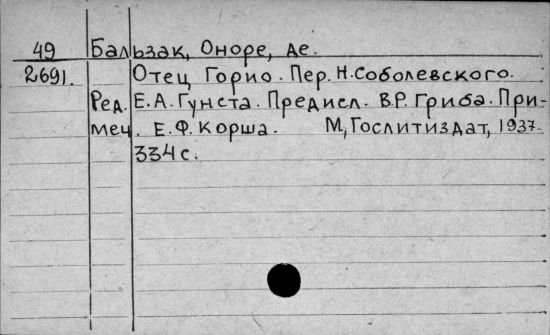 49 Бальзак, Оноре, де.
2691. Отец Горио. Пер. Н. Соболевского.
Ред. Е.А. Гунста. Предисл. В.Р. Гриба. При-
меч. Е.Ф. Корша. М, Гослитиздат, 1937.
334 с.